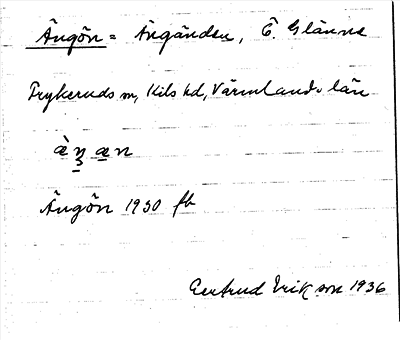 Ängön = Ängänden, Ö. Glänne
Frykeruds sn, Kils hd, Värmlands län
Ängön 1930 fb
Gertrud Erikson 1936